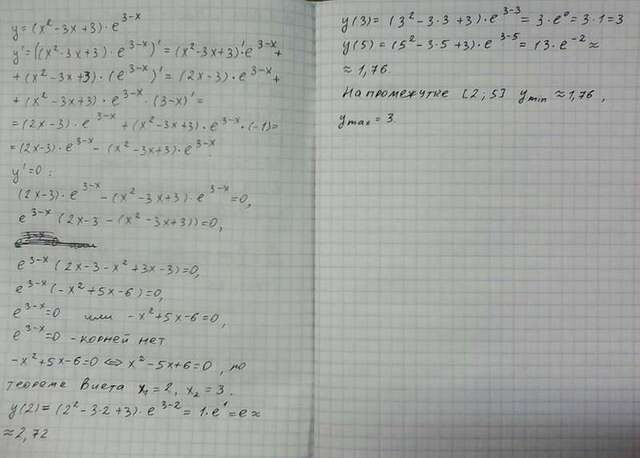 y = (x² - 3x + 3) · e^(3-x)
y' = ((x² - 3x + 3) · e^(3-x))' = (x² - 3x + 3)' · e^(3-x) +
+ (x² - 3x + 3) · (e^(3-x))' = (2x - 3) · e^(3-x) +
+ (x² - 3x + 3) · e^(3-x) · (3-x)' =
= (2x - 3) · e^(3-x) + (x² - 3x + 3) · e^(3-x) · (-1) =
= (2x - 3) · e^(3-x) - (x² - 3x + 3) · e^(3-x).
y' = 0 :
(2x - 3) · e^(3-x) - (x² - 3x + 3) · e^(3-x) = 0,
e^(3-x) (2x - 3 - (x² - 3x + 3)) = 0,
e^(3-x) (2x - 3 - x² + 3x - 3) = 0,
e^(3-x) (-x² + 5x - 6) = 0,
e^(3-x) = 0 или -x² + 5x - 6 = 0,
e^(3-x) = 0 - корней нет
-x² + 5x - 6 = 0 ⇔ x² - 5x + 6 = 0, по
теореме Виета x₁ = 2, x₂ = 3.
y(2) = (2² - 3·2 + 3) · e^(3-2) = 1 · e¹ = e ≈
≈ 2,72
y(3) = (3² - 3·3 + 3) · e^(3-3) = 3 · e⁰ = 3 · 1 = 3
y(5) = (5² - 3·5 + 3) · e^(3-5) = 13 · e^(-2) ≈
≈ 1,76.
На промежутке [2; 5] y min ≈ 1,76,
y max = 3.